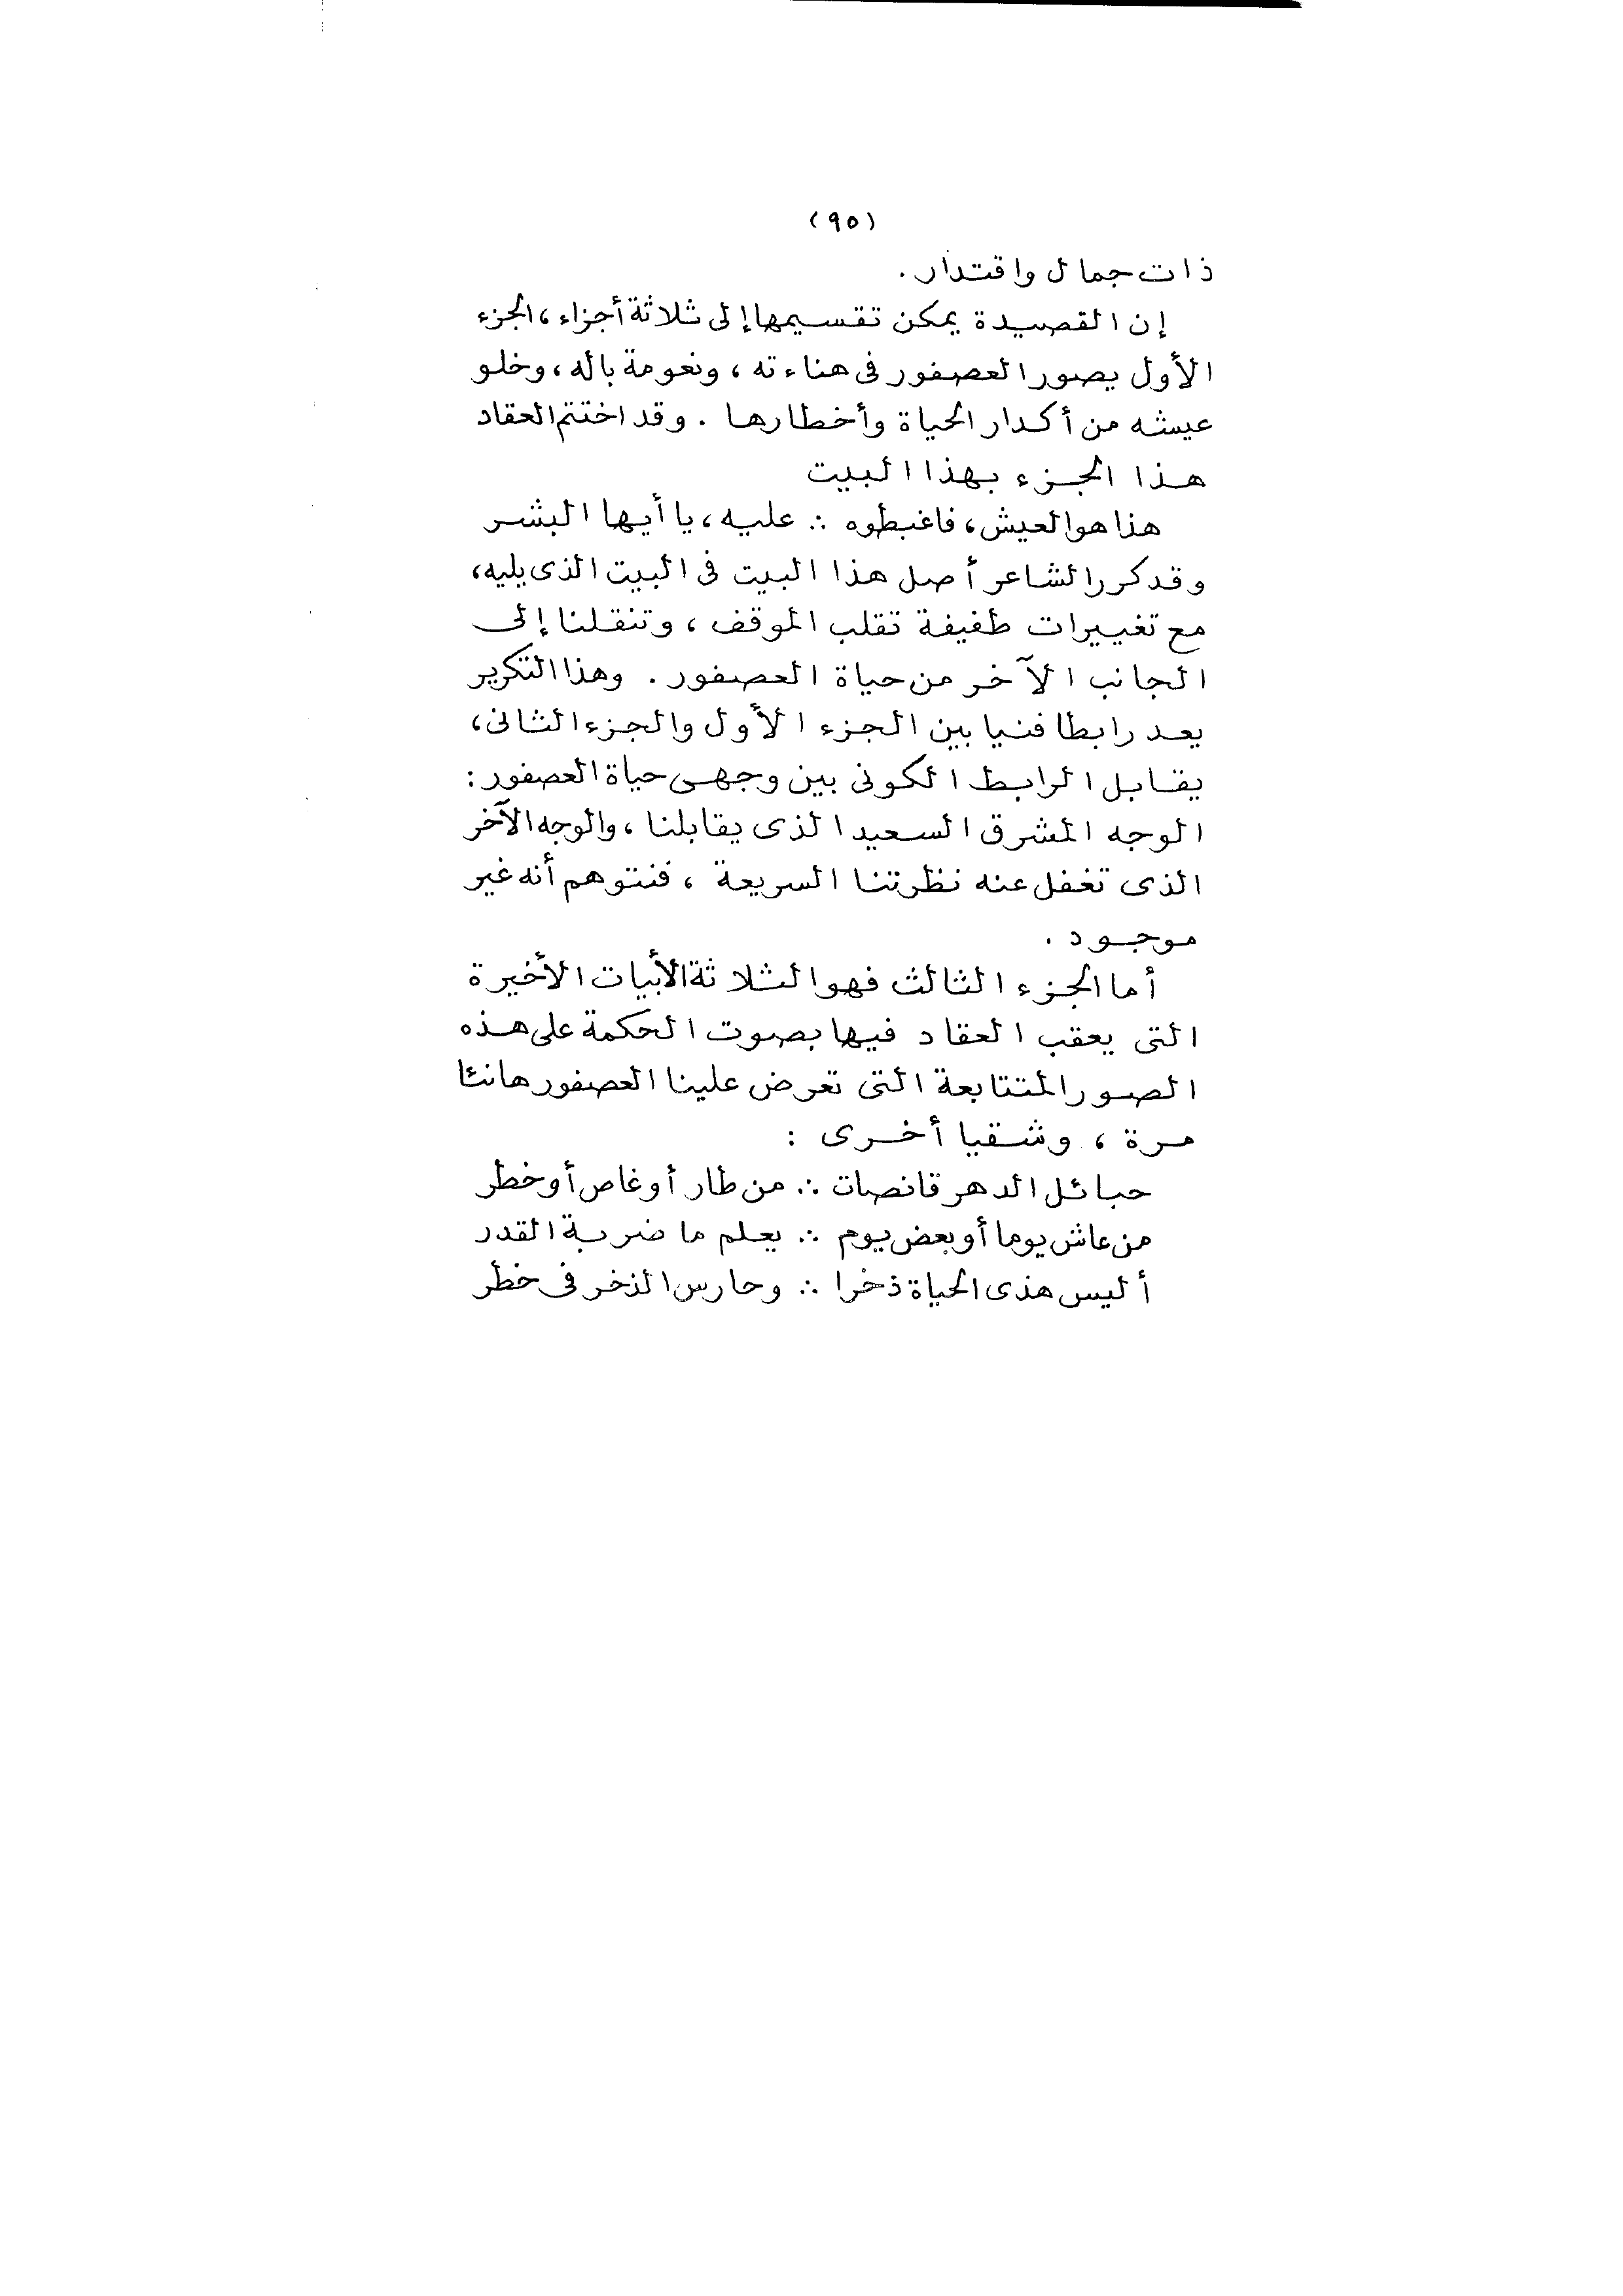 (٩٥)
ذات جمال واقتدار.
إن القصيدة يمكن تقسيمها إلى ثلاثة أجزاء، الجزء
الأول يصور العصفور فى هناءته، ونعومة باله، وخلو
عيشه من أكدار الحياة وأخطارها. وقد اختتم العقاد
هذا الجزء بهذا البيت
هذا هو العيش، فاغبطوه ∴ عليه، يا أيها البشر
وقد كرر الشاعر أصل هذا البيت فى البيت الذى يليه،
مع تغييرات طفيفة تقلب الموقف، وتنقلنا إلى
الجانب الآخر من حياة العصفور. وهذا التكرير
يعد رابطا فنيا بين الجزء الأول والجزء الثانى،
يقابل الرابط الكونى بين وجهى حياة العصفور:
الوجه المشرق السعيد الذى يقابلنا، والوجه الآخر
الذى تغفل عنه نظرتنا السريعة، فنتوهم أنه غير
موجود.
أما الجزء الثالث فهو الثلاثة الأبيات الأخيرة
التى يعقب العقاد فيها بصوت الحكمة على هذه
الصور المتتابعة التى تعرض علينا العصفور هانئا
مرة، وشقيا أخرى:
حبائل الدهر قانصات ∴ من طار أو غاص أو خطر
من عاش يوما أو بعض يوم ∴ يعلم ما ضربة القدر
أليس هذى الحياة ذخرا ∴ وحارس الذخر فى خطر